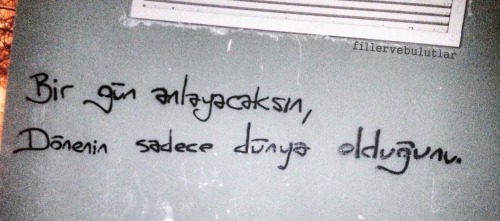 fillervebulutlar
Bir gün anlayacaksın,
Dönenin sadece dünya olduğunu.